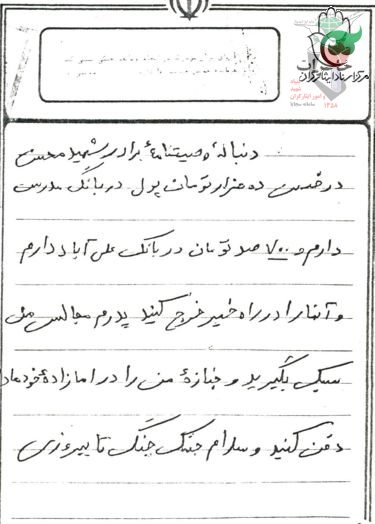 مرکز اسناد ایثارگران
دنباله وصیتنامهٔ برادر شهید محسن
در ضمن ده هزار تومان پول در بانک مدرس
دارم و ۷۰۰ صد تومان در بانک علی آباد دارم
و آنها را در راه خیر خرج کنید پدرم مجالس من
سبک بگیرید و جنازهٔ من را در امامزادهٔ خودمان
دفن کنید و سلام جنگ جنگ تا پیروزی